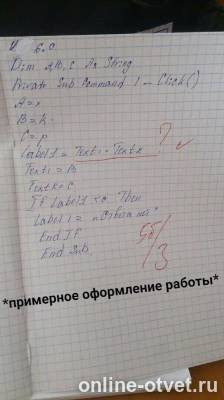 6.0
Dim A,B,C As String
Private Sub Command 1 - Click()
A=
B=
C=p
Label1 = Text1 - Text2
?
Text1 = B
Text2 = C
If Label1 < 0 Then
Label1 = "Ответа нет"
End If
End Sub
/3
*примерное оформление работы*
online-otvet.ru